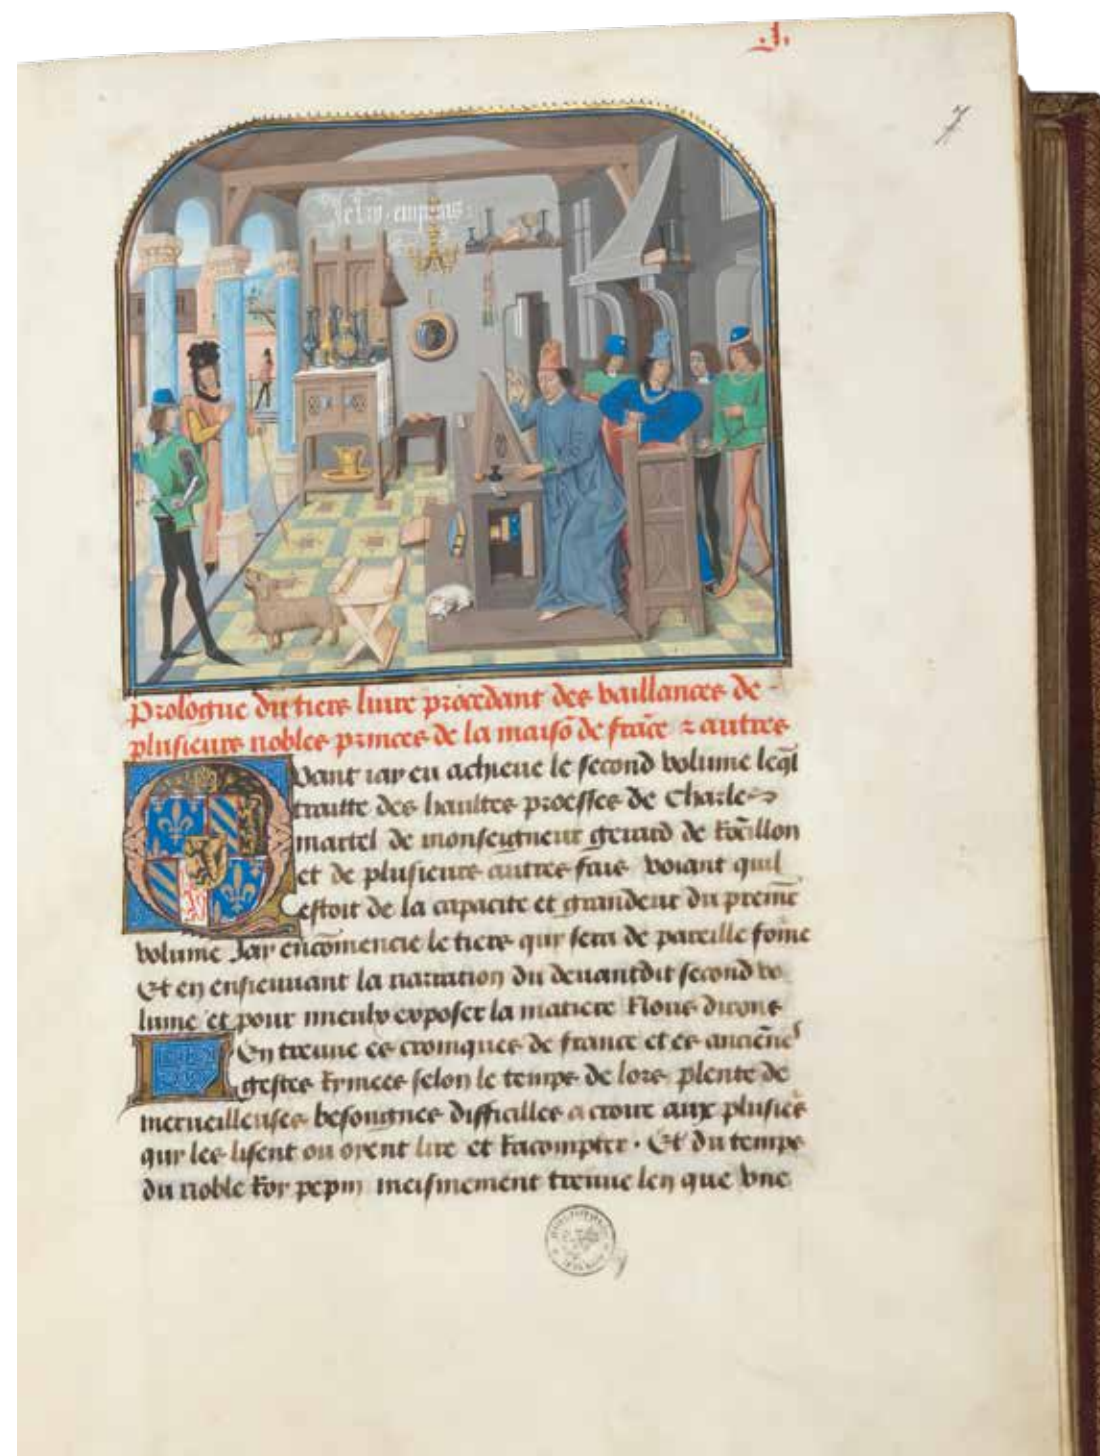 .I.
7
Je lay empris
Prologue du tiers livre procedant des vaillances de
plusieurs nobles princes de la maisõ de frãce ⁊ autres
Quant iay eu achieue le second volume leq̃l
traitte des haultes proesses de Charles
martel de monseigneur gerard de Rõcillon
et de plusieurs autres fais voiant quil
estoit de la capacite et grandeur du premie
volume Jay encõmencie le tiers qui sera de pareille fõme
Et en ensieuuant la narration du deuantdit second vo
lume et pour mieulx exposer la matiere Nous dirons
En treuue es croniques de france et es anciẽnes
gestes Rymees selon le temps de lors plente de
merueilleuses besongnes difficilles a croire aux plusieꝰs
qui les lisent ou oyent lire et Racompter. Et du temps
du noble Roy pepin meismement treuue len que vne